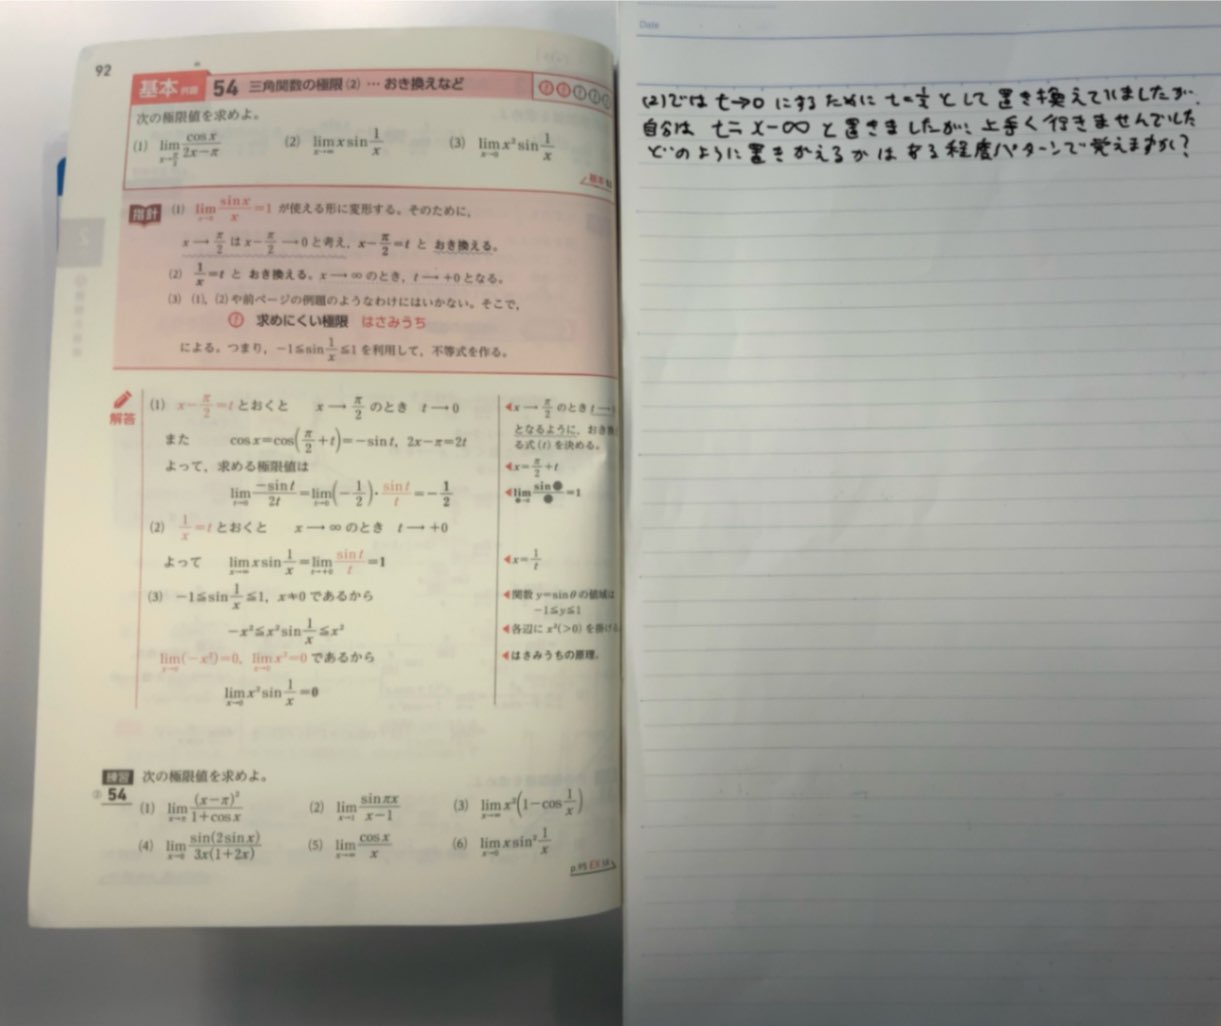 92
基本 例題 54 三角関数の極限(2) … おき換えなど
次の極限値を求めよ。
(1) lim_{x→π/2} cos x/(2x−π) (2) lim_{x→∞} x sin 1/x (3) lim_{x→0} x² sin 1/x
基本
指針 (1) lim_{x→0} sin x/x =1 が使える形に変形する。そのために，
x → π/2 は x−π/2 → 0 と考え，x−π/2=t と おき換える。
(2) 1/x=t と おき換える。x → ∞ のとき，t → +0 となる。
(3) (1)，(2)や前ページの例題のようなわけにはいかない。そこで，
求めにくい極限 はさみうち
による。つまり，−1≦sin 1/x≦1 を利用して，不等式を作る。
解答
(1) x−π/2=t とおくと x → π/2 のとき t → 0
また cos x=cos(π/2+t)=−sin t，2x−π=2t
よって，求める極限値は
lim_{t→0} −sin t/2t = lim_{t→0} (−1/2)・sin t/t = −1/2
(2) 1/x=t とおくと x → ∞ のとき t → +0
よって lim_{x→∞} x sin 1/x = lim_{t→+0} sin t/t =1
(3) −1≦sin 1/x≦1，x≠0 であるから
−x²≦x² sin 1/x≦x²
lim_{x→0}(−x²)=0，lim_{x→0} x²=0 であるから
lim_{x→0} x² sin 1/x =0
◀x → π/2 のとき t →
となるように，おき換
る式(t)を決める。
◀x=π/2+t
◀lim_{●→0} sin●/● =1
◀x=1/t
◀関数 y=sin θ の値域は
−1≦y≦1
◀各辺に x²(>0) を掛ける
◀はさみうちの原理。
練習 次の極限値を求めよ。
② 54
(1) lim_{x→π} (x−π)²/(1+cos x) (2) lim_{x→1} sin πx/(x−1) (3) lim_{x→∞} x²(1−cos 1/x)
(4) lim_{x→0} sin(2 sin x)/3x(1+2x) (5) lim_{x→∞} cos x/x (6) lim_{x→0} x sin² 1/x
p.95 EX
Date
(2)では t→0 にするために t=1/x として置き換えていましたが、
自分は t=x−∞ と置きましたが、上手く行きませんでした
どのように置きかえるかはある程度パターンで覚えますか？